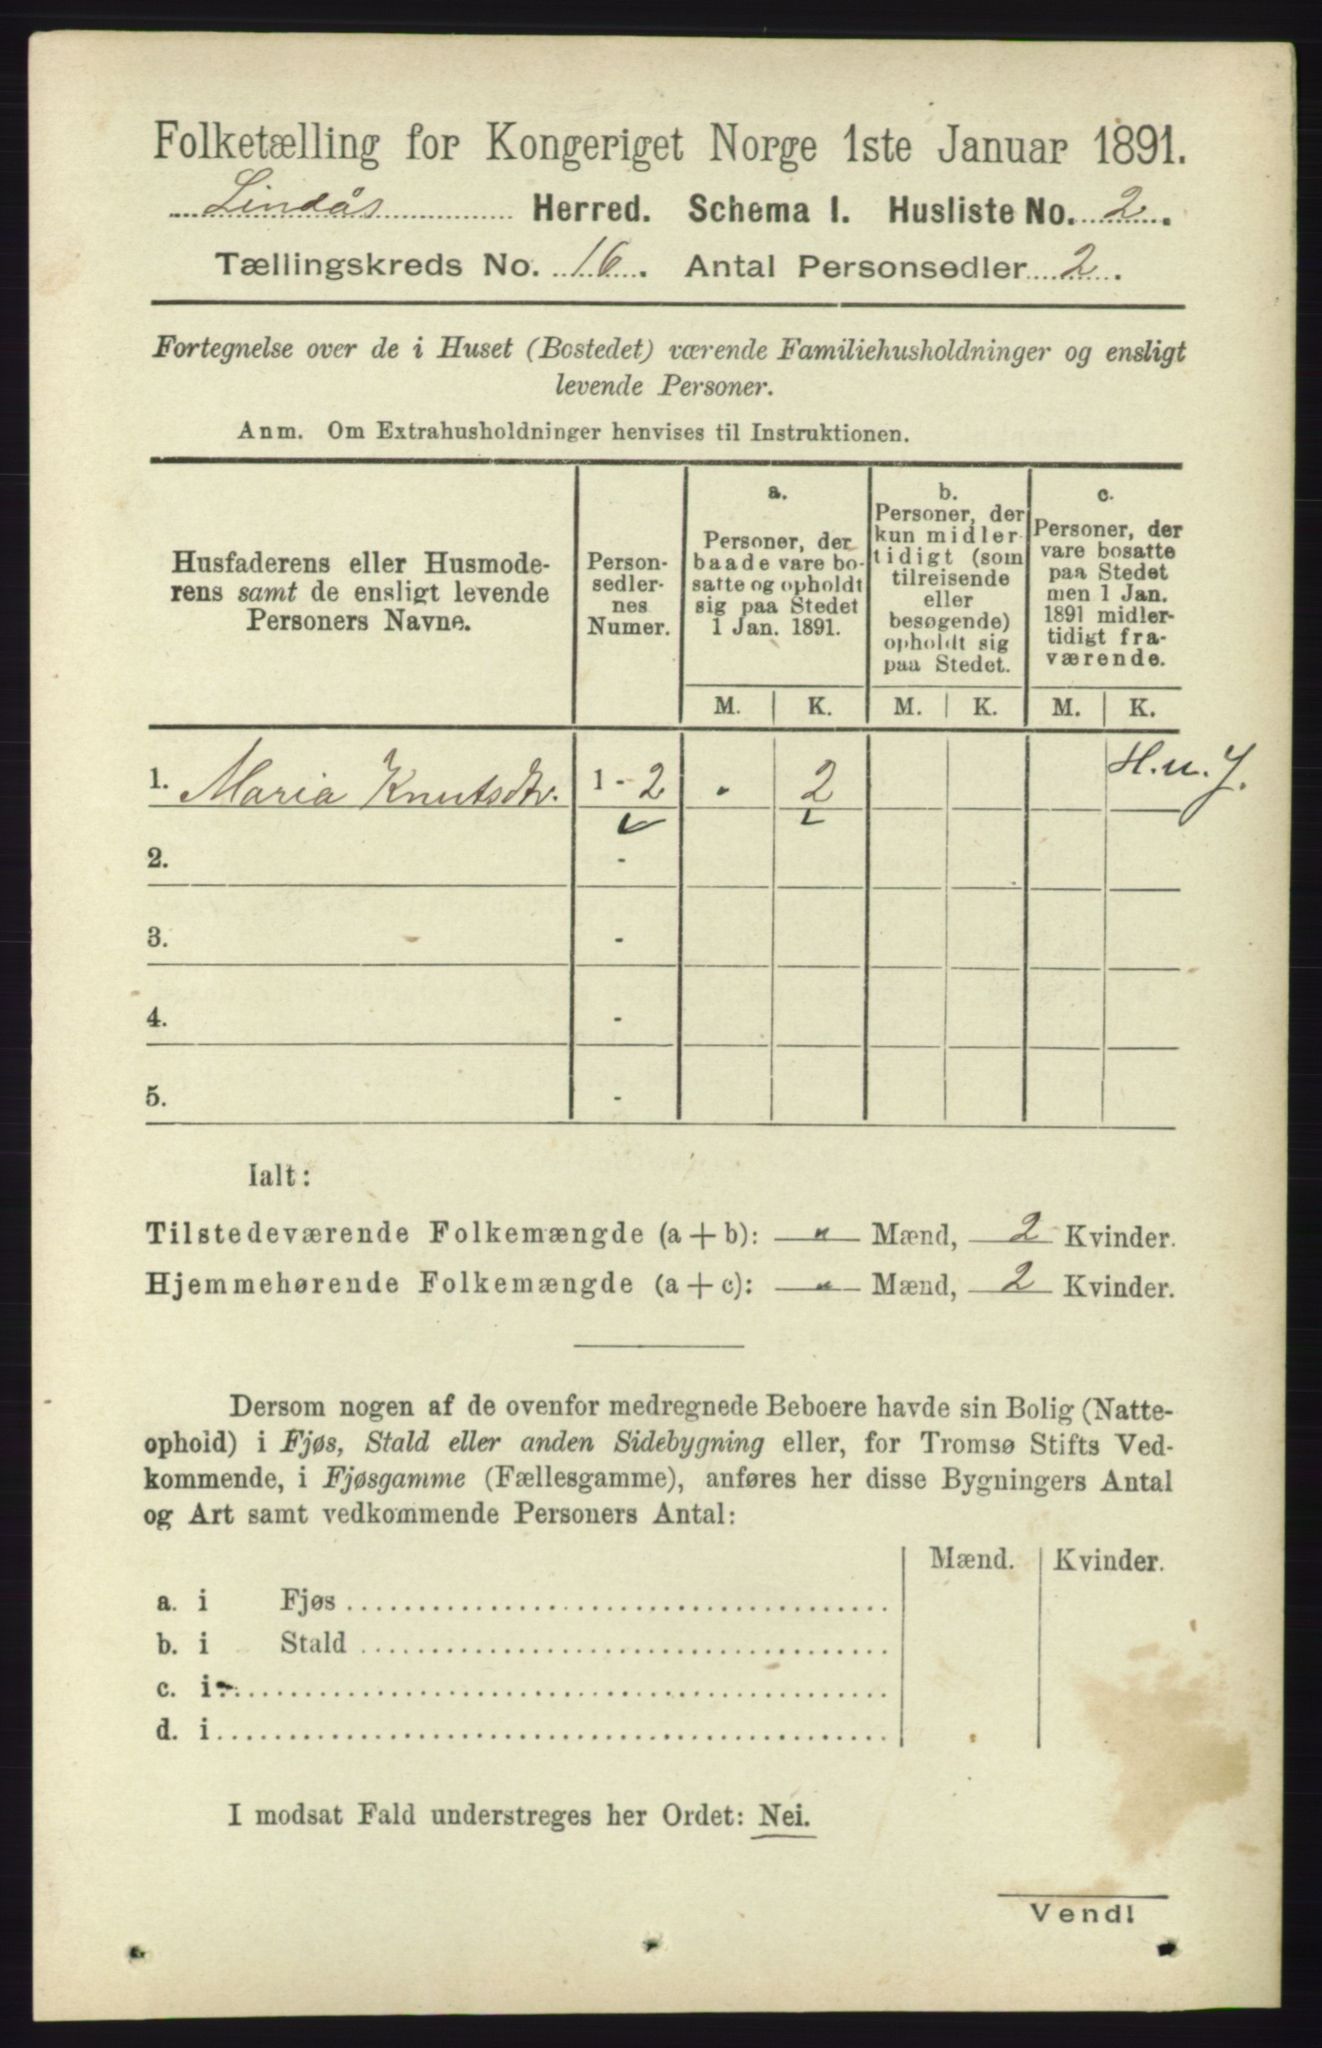 Folketælling for Kongeriget Norge 1ste Januar 1891.
Lindås Herred. Schema I. Husliste No. 2.
Tællingskreds No. 16. Antal Personsedler 2.
Fortegnelse over de i Huset (Bostedet) værende Familiehusholdninger og ensligt
levende Personer.
Anm. Om Extrahusholdninger henvises til Instruktionen.
Husfaderens eller Husmode-
rens samt de ensligt levende
Personers Navne.
Person-
sedler-
nes
Numer.
a.
Personer, der
baade vare bo-
satte og opholdt
sig paa Stedet
1 Jan. 1891.
b.
Personer, der
kun midler-
tidigt (som
tilreisende
eller
besøgende)
opholdt sig
paa Stedet.
c.
Personer, der
vare bosatte
paa Stedet
men 1 Jan.
1891 midler-
tidigt fra-
værende.
M. K. M. K. M. K.
1. Maria Knutsdtr. 1 - 2 . 2 H.u.J.
2. -
3. -
4. -
5. -
Ialt:
Tilstedeværende Folkemængde (a + b): " Mænd, 2 Kvinder.
Hjemmehørende Folkemængde (a + c): " Mænd, 2 Kvinder.
Dersom nogen af de ovenfor medregnede Beboere havde sin Bolig (Natte-
ophold) i Fjøs, Stald eller anden Sidebygning eller, for Tromsø Stifts Ved-
kommende, i Fjøsgamme (Fællesgamme), anføres her disse Bygningers Antal
og Art samt vedkommende Personers Antal:
Mænd. Kvinder.
a. i Fjøs
b. i Stald
c. i
d. i
I modsat Fald understreges her Ordet: Nei.
Vend!